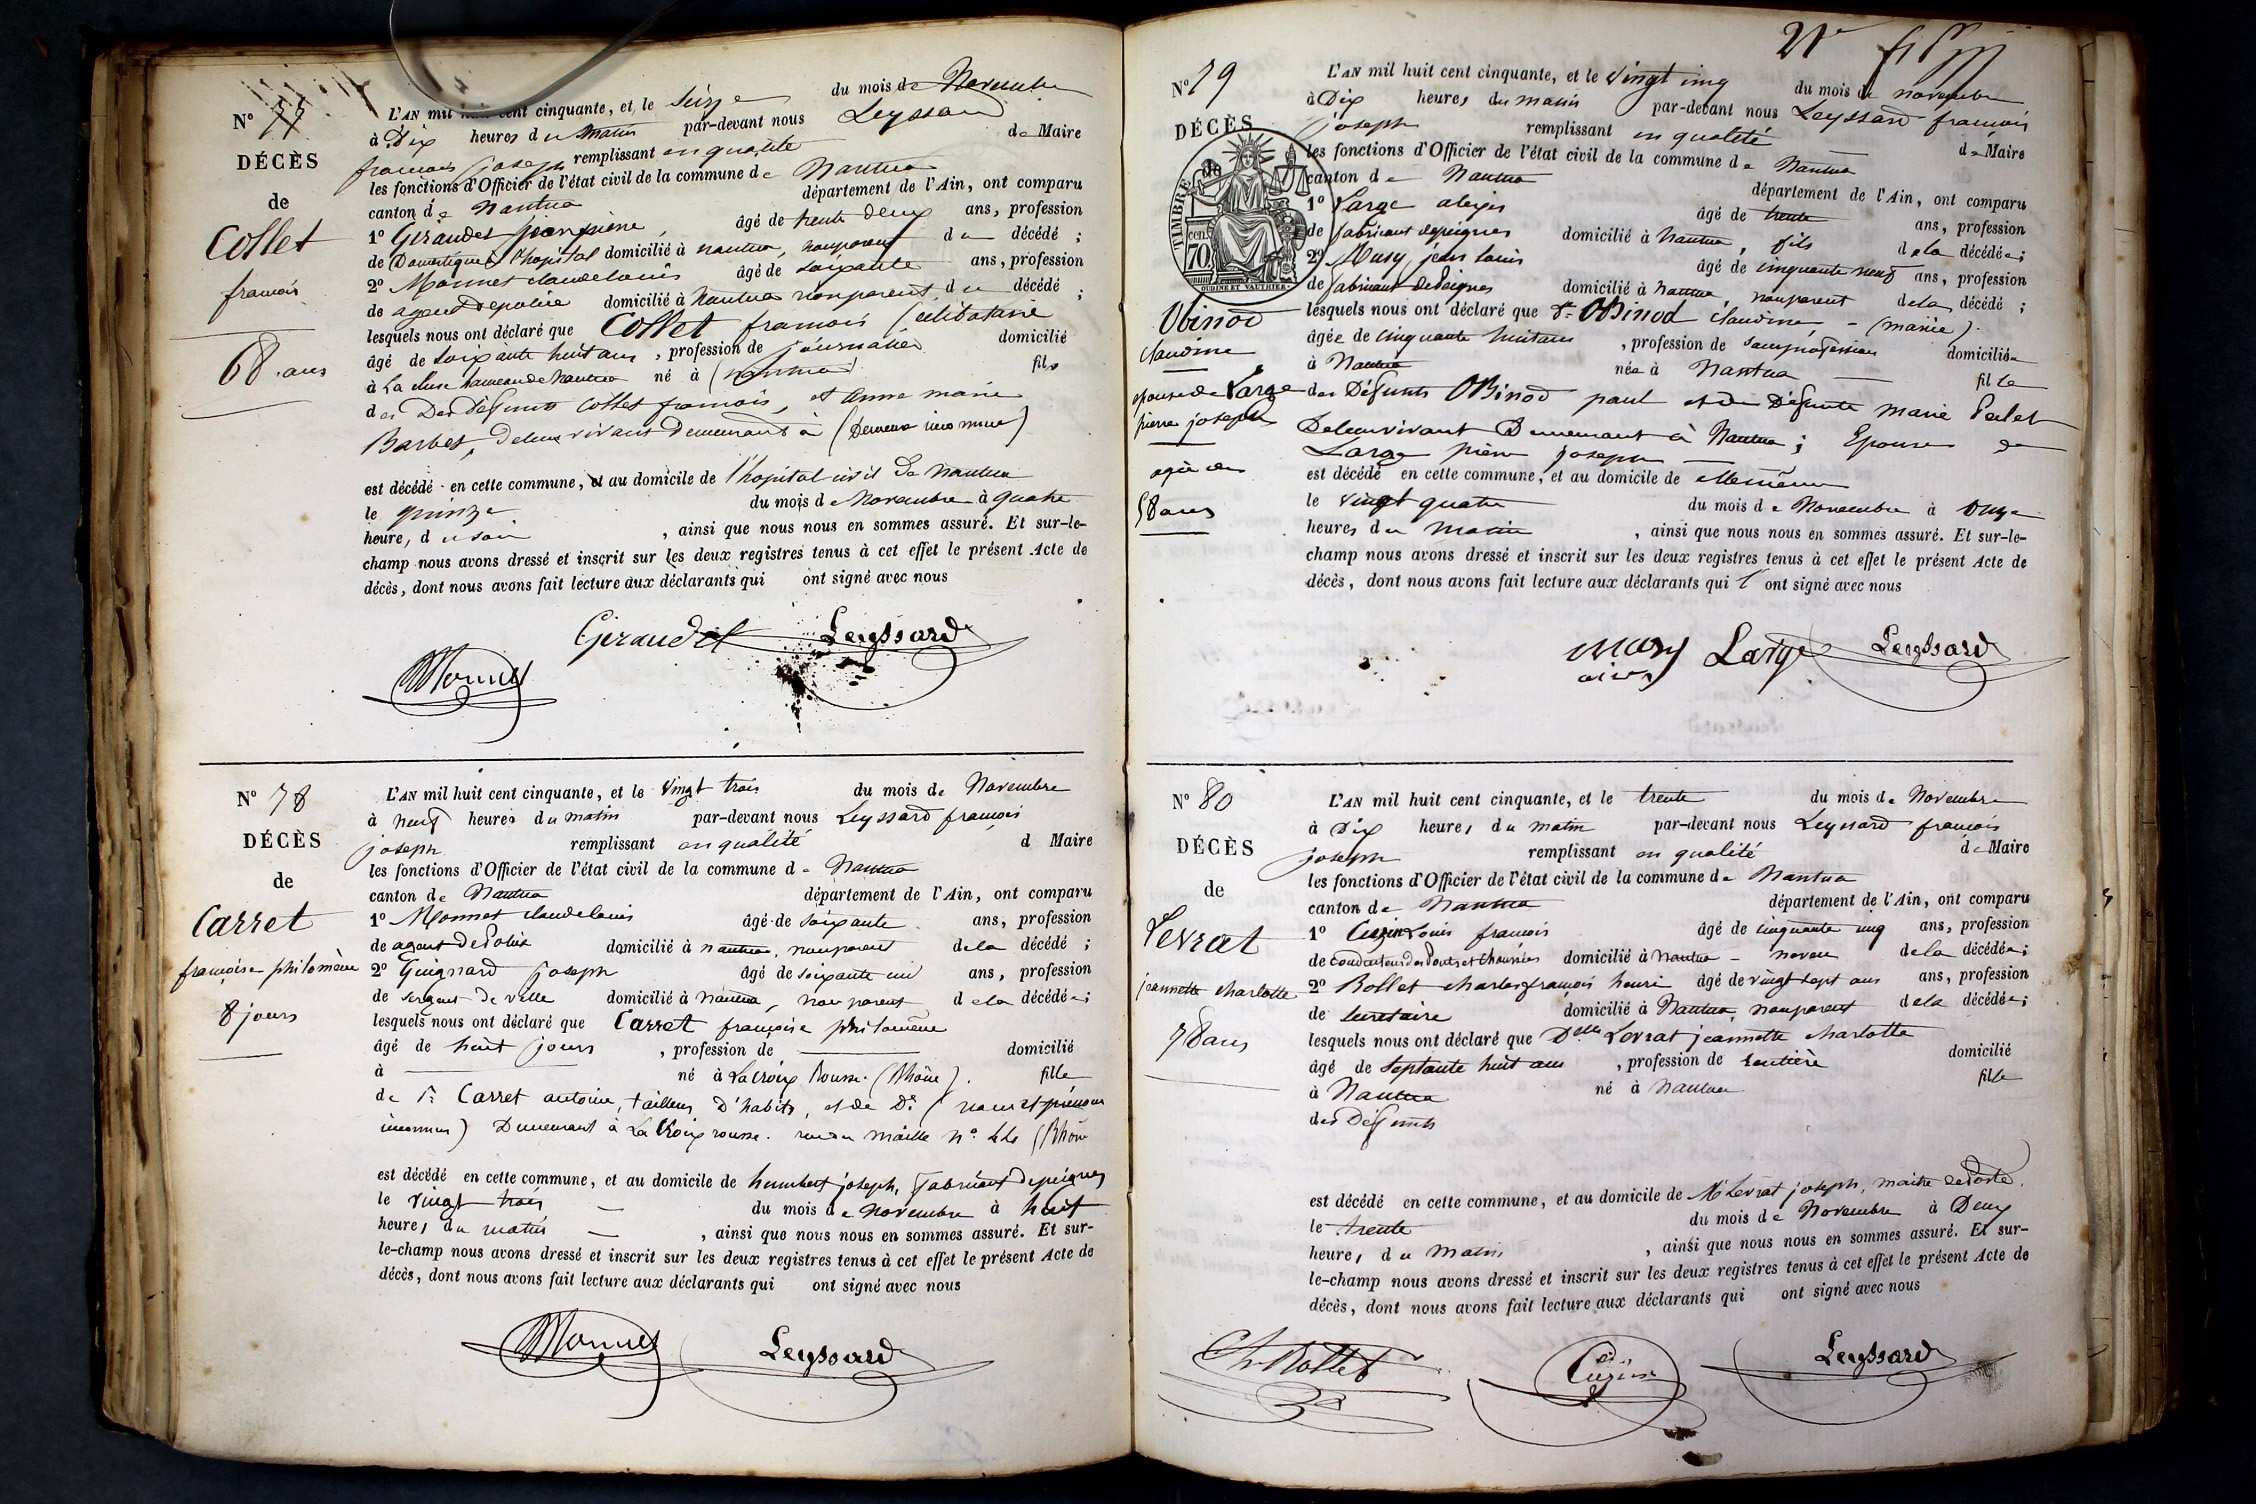 N° 77
DÉCÈS
de
Collet
francois
68 ans
L'AN mil huit cent cinquante, et le Seize du mois de Novembre
à Dix heures du matin par-devant nous Leyssard
francois joseph remplissant en qualité de Maire
les fonctions d'Officier de l'état civil de la commune de Nantua
canton de Nantua département de l'Ain, ont comparu
1° Giraudet jean pierre, âgé de trente deux ans, profession
de Domestique à l'hopital domicilié à nantua, non parent du décédé ;
2° Monnet claude louis âgé de soixante ans, profession
de agent de police domicilié à nantua non parent du décédé ;
lesquels nous ont déclaré que Collet francois celibataire
âgé de soixante huit ans, profession de journalier domicilié
à La cluse hameau de nantua né à (nantua) fils
des Des défunts Collet francois, et anne marie
Barbet, de leur vivant demeurant à (Demeure inconnue)
est décédé en cette commune, et au domicile de l'hopital civil de nantua
le quinze du mois de Novembre à quatre
heure, du soir, ainsi que nous nous en sommes assuré. Et sur-le-
champ nous avons dressé et inscrit sur les deux registres tenus à cet effet le présent Acte de
décès, dont nous avons fait lecture aux déclarants qui ont signé avec nous
Giraudet Leyssard
Monnet
N° 78
DÉCÈS
de
Carret
françoise philomène
8 jours
L'AN mil huit cent cinquante, et le vingt trois du mois de Novembre
à neuf heures du matin par-devant nous Leyssard françois
joseph remplissant en qualité d Maire
les fonctions d'Officier de l'état civil de la commune de Nantua
canton de Nantua département de l'Ain, ont comparu
1° Monnet claude louis âgé de soixante ans, profession
de agent de Police domicilié à nantua, non parent de la décédé ;
2° Guignard joseph âgé de soixante un ans, profession
de sergent de ville domicilié à nantua, non parent de la décédée ;
lesquels nous ont déclaré que Carret françoise philomène
âgé de huit jours, profession de domicilié
à né à La croix Rousse (Rhône). fille
de Sr. Carret antoine, tailleur d'habits, et de De. (nom et prénom
inconnus) Demeurant à La Croix rousse. rue du maille n° (Rhône
est décédé en cette commune, et au domicile de humbert joseph, fabricant de peignes
le vingt trois du mois de Novembre à huit
heures du matin, ainsi que nous nous en sommes assuré. Et sur-
le-champ nous avons dressé et inscrit sur les deux registres tenus à cet effet le présent Acte de
décès, dont nous avons fait lecture aux déclarants qui ont signé avec nous
Monnet Leyssard
N° 79
DÉCÈS
de
TIMBRE
cen. 70
OUDINE ET VAUTHIER
Obinod
claudine
epouse de Large
pierre joseph
agée de
58 ans
L'AN mil huit cent cinquante, et le vingt cinq du mois de novembre
à Dix heures du matin par-devant nous Leyssard francois
joseph remplissant en qualité de Maire
les fonctions d'Officier de l'état civil de la commune de Nantua
canton de Nantua département de l'Ain, ont comparu
1° Large alexis âgé de trente ans, profession
de fabricant de peignes domicilié à Nantua, fils de la décédée ;
2° Musy jean louis âgé de cinquante neuf ans, profession
de fabricant de Peignes domicilié à nantua, non parent de la décédé ;
lesquels nous ont déclaré que De. Obinod claudine, - (mariée).
âgée de cinquante huit ans, profession de sans profession domiciliée
à Nantua née à Nantua fille
des Défunts Obinod paul et de Défunte marie Perlet
De leur vivant Demeurant à Nantua ; Epouse de
Large pierre joseph
est décédé en cette commune, et au domicile de elle même
le vingt quatre du mois de Novembre à onze
heures du matin, ainsi que nous nous en sommes assuré. Et sur-le-
champ nous avons dressé et inscrit sur les deux registres tenus à cet effet le présent Acte de
décès, dont nous avons fait lecture aux déclarants qui ont signé avec nous
Musy Large Leyssard
N° 80
DÉCÈS
de
Levrat
jeannette charlotte
78 ans
L'AN mil huit cent cinquante, et le trente du mois de Novembre
à Dix heures du matin par-devant nous Leyssard françois
joseph remplissant en qualité de Maire
les fonctions d'Officier de l'état civil de la commune de Nantua
canton de Nantua département de l'Ain, ont comparu
1° Cuzin Louis francois âgé de cinquante cinq ans, profession
de conducteur des Ponts et Chaussées domicilié à Nantua - neveu de la décédée ;
2° Rollet charles francois henri âgé de vingt sept ans ans, profession
de secretaire domicilié à Nantua, non parent de la décédée ;
lesquels nous ont déclaré que Dlle Levrat jeannette charlotte
âgé de septante huit ans, profession de rentière domicilié
à Nantua né à Nantua fille
des Défunts
est décédé en cette commune, et au domicile de Mr Levrat joseph, maitre de Poste.
le trente du mois de Novembre à Deux
heures du matin, ainsi que nous nous en sommes assuré. Et sur-
le-champ nous avons dressé et inscrit sur les deux registres tenus à cet effet le présent Acte de
décès, dont nous avons fait lecture aux déclarants qui ont signé avec nous
Ch Rollet Cuzin Leyssard